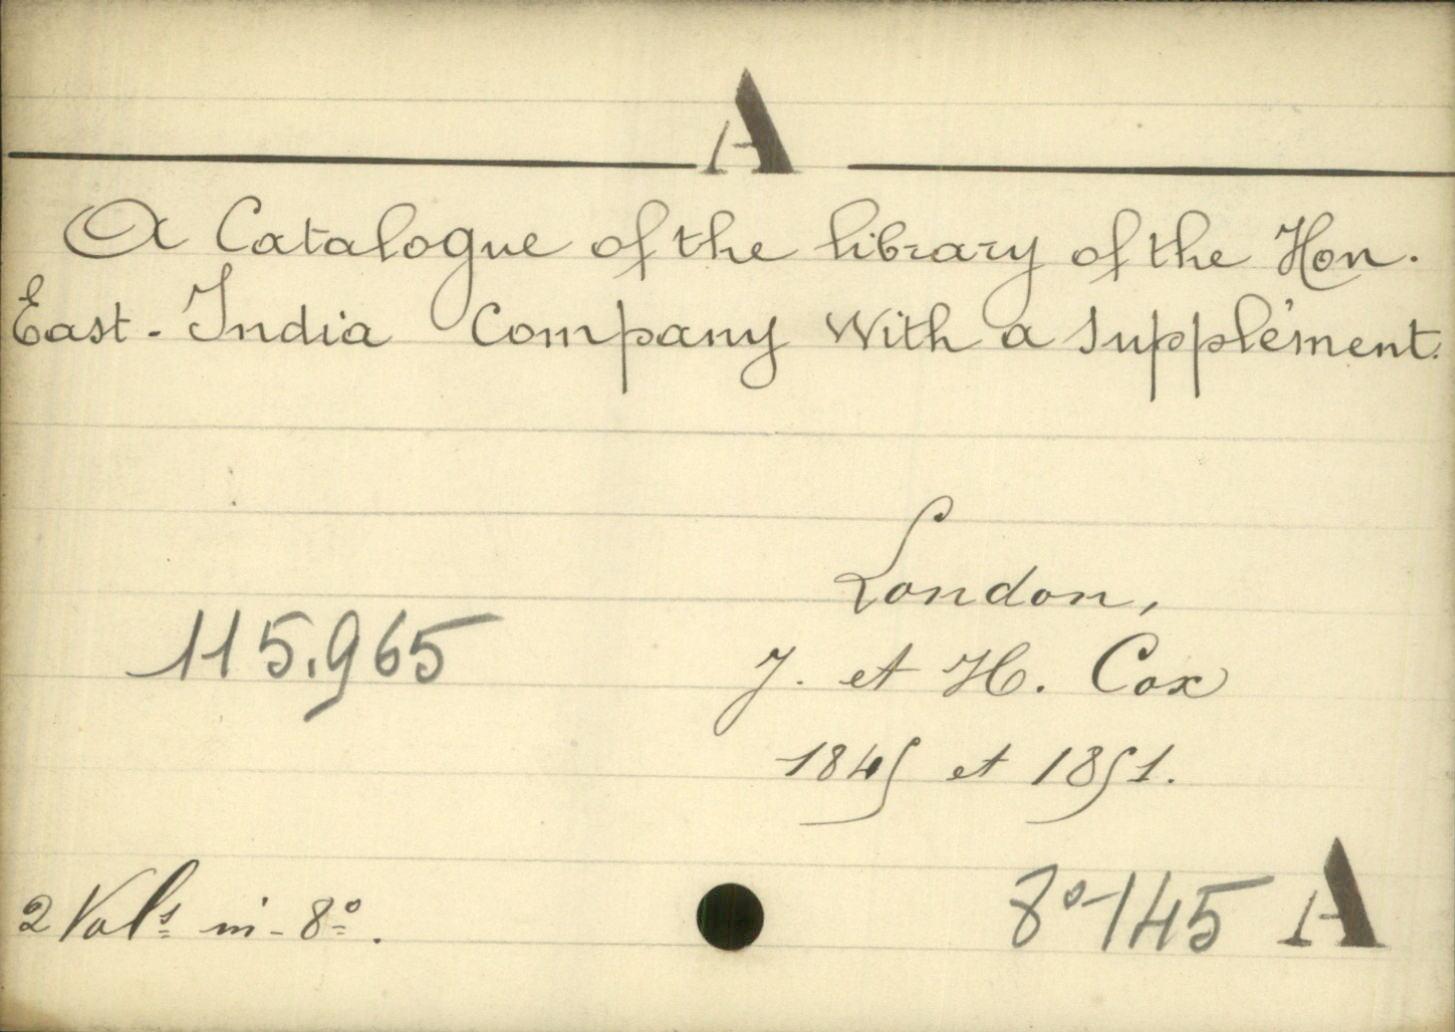 A
A Catalogue of the library of the Hon.
East-India Company With a Supplément.
London,
115.965
J. et H. Cox
1845 et 1851.
2 Vols in-8º.
8º 145 A